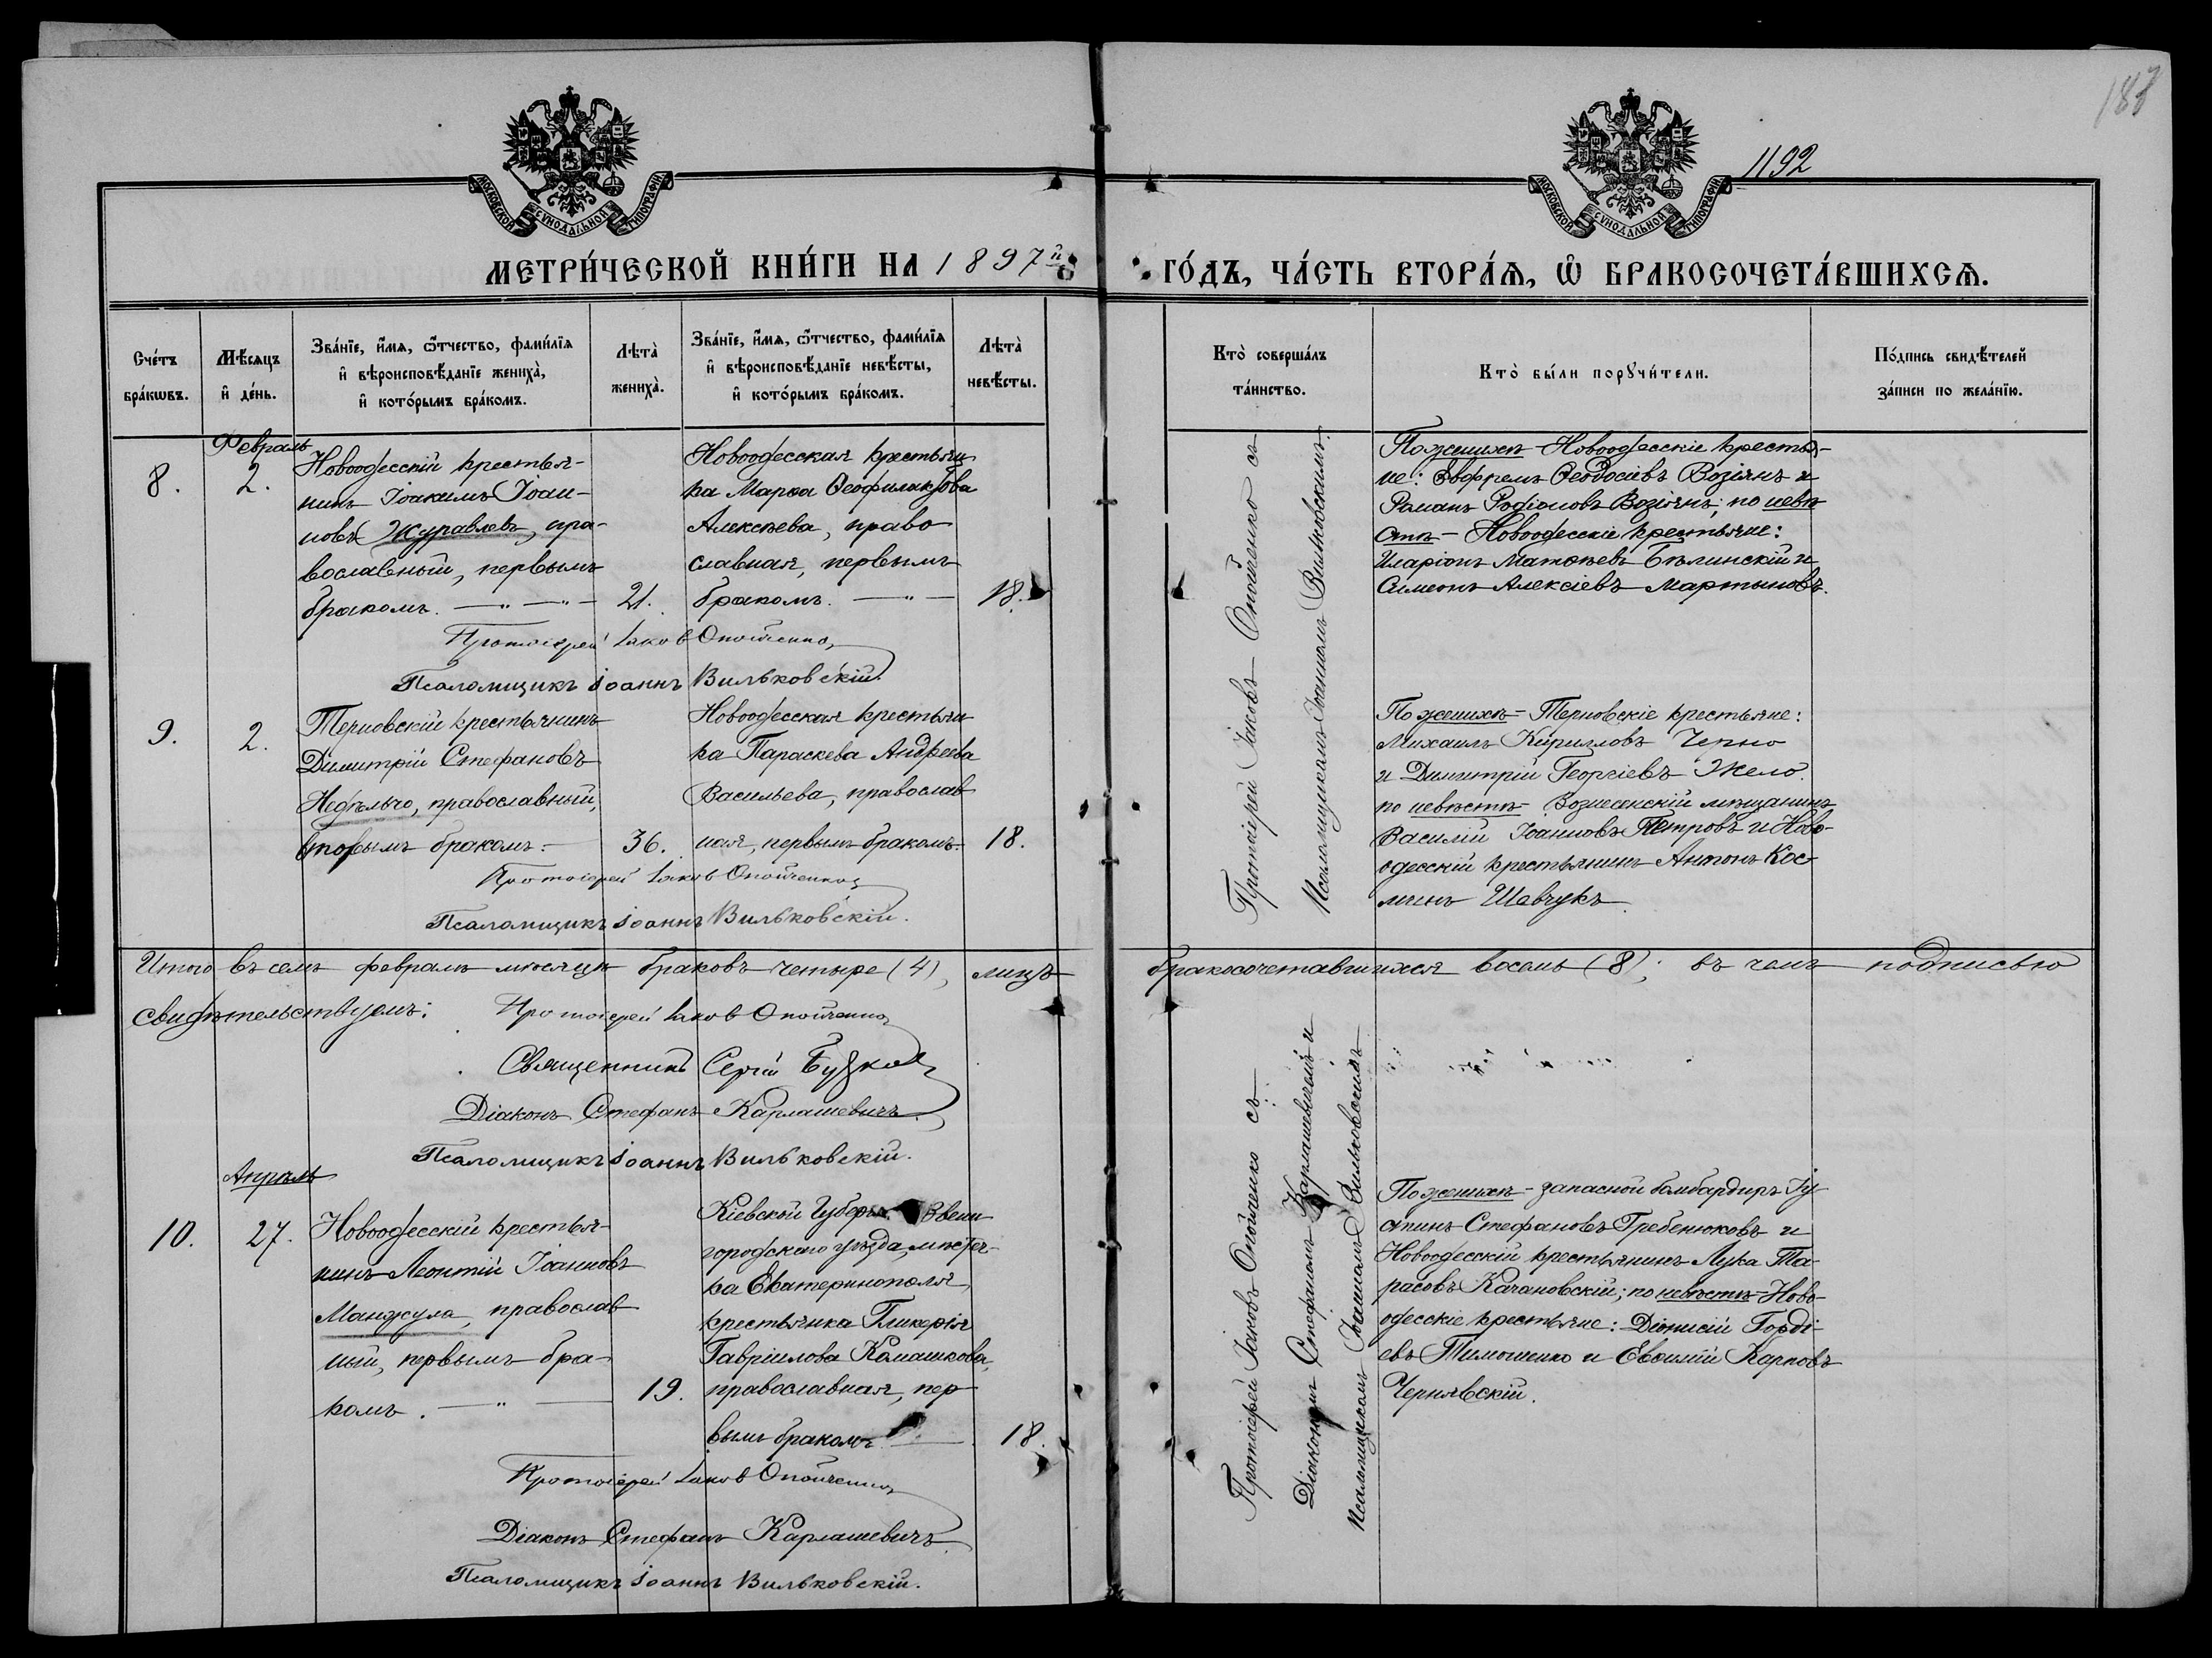 187
1192
МОСКОВСКОЙ СУНОДАЛЬНОЙ ТИПОГРАФІИ
МОСКОВСКОЙ СУНОДАЛЬНОЙ ТИПОГРАФІИ
МЕТРИ́ЧЕСКОЙ КНИ́ГИ НА 1897й
ГО́ДЪ, ЧА́СТЬ ВТОРА́Я, Ѽ БРАКОСОЧЕТА́ВШИХСЯ.
Сче́тъ
бра́кѡвъ.
Мѣ́сяцъ
и҆ де́нь.
Зва́нїе, и҆́мя, ѻ҆́тчество, фами́лїя
и҆ вѣроисповѣ́данїе жениха̀,
и҆ кото́рымъ бра́комъ.
Лѣта̀
жениха̀.
Зва́нїе, и҆́мя, ѻ҆́тчество, фами́лїя
и҆ вѣроисповѣ́данїе невѣ́сты,
и҆ кото́рымъ бра́комъ.
Лѣта̀
невѣ́сты.
Кто̀ соверша́лъ
та́инство.
Кто̀ бы́ли порꙋчи́тели.
По́дпись свидѣ́телей
за́писи по жела́нїю.
Февраль
8.
2.
Новоодесскій крестья-
нинъ Іоакимъ Іоан-
новъ Журавлевъ, пра-
вославный, первымъ
бракомъ. — „ — „ —
21.
Новоодесская крестьян
ка Марѳа Ѳеофилактова
Алексѣева, право
славная, первымъ
бракомъ. — „ —
18.
Протоіерей Іаковъ Опойченко съ
Псаломщикомъ Іоанномъ Вильковскимъ.
По женихѣ - Новоодесскіе крестья-
не: Евфремъ Ѳеодосіевъ Возіянъ и
Романъ Родіоновъ Возіянъ; по невѣ
стѣ - Новоодесскіе крестьяне:
Иларіонъ Матѳѣевъ Бѣлинскій и
Симеонъ Алексіевъ Мартыновъ.
Протоіерей Іаков Опойченко
Псаломщикъ Іоаннъ Вильковскій.
9.
2.
Терновскій крестьянинъ
Димитрій Стефановъ
Недѣльчо, православный,
вторымъ бракомъ. -
36.
Новоодесская крестьян
ка Параскева Андреева
Васильева, православ
ная, первымъ бракомъ.
18.
По женихѣ - Терновскіе крестьяне:
Михаилъ Кирилловъ Черно
и Димитрій Георгіевъ Жело.
по невѣстѣ - Вознесенскій мѣщанинъ
Василій Іоанновъ Петровъ и Ново-
одесскій крестьянинъ Антонъ Кос-
минъ Шевчукъ.
Протоіерей Іаков Опойченко
Псаломщикъ Іоаннъ Вильковскій.
Итого въ семъ февралѣ мѣсяцѣ браковъ четыре (4), лицъ бракосочетавшихся восемь (8); въ чемъ подписью
свидѣтельствуемъ: Протоіерей Іаков Опойченко
Священникъ Сергій Буцков
Діаконъ Стефанъ Карлашевичъ.
Псаломщикъ Іоаннъ Вильковскій.
Апрѣль
10.
27.
Новоодесскій крестья-
нинъ Леонтій Іоанновъ
Манжула, православ
ный, первымъ бра-
комъ. — „ —
19.
Кіевской Губерн. Звени
городскаго уѣзда, мѣстеч-
ка Екатеринополя,
крестьянка Гликерія
Гавріилова Комашкова,
православная, пер
вымъ бракомъ. —
18.
Протоіерей Іаковъ Опойченко съ:
Діакономъ Стефаномъ Карлашевичемъ и
Псаломщикомъ Іоанномъ Вильковскимъ.
По женихѣ - запасной бомбардиръ Іу-
стинъ Стефановъ Гребенюковъ и
Новоодесскій крестьянинъ Лука Та-
расовъ Качановскій; по невѣстѣ - Ново-
одесскіе крестьяне: Діонисій Горді-
евъ Тимошенко и Евѳимій Карповъ
Чернявскій.
Протоіерей Іаков Опойченко
Діаконъ Стефанъ Карлашевичъ.
Псаломщикъ Іоаннъ Вильковскій.